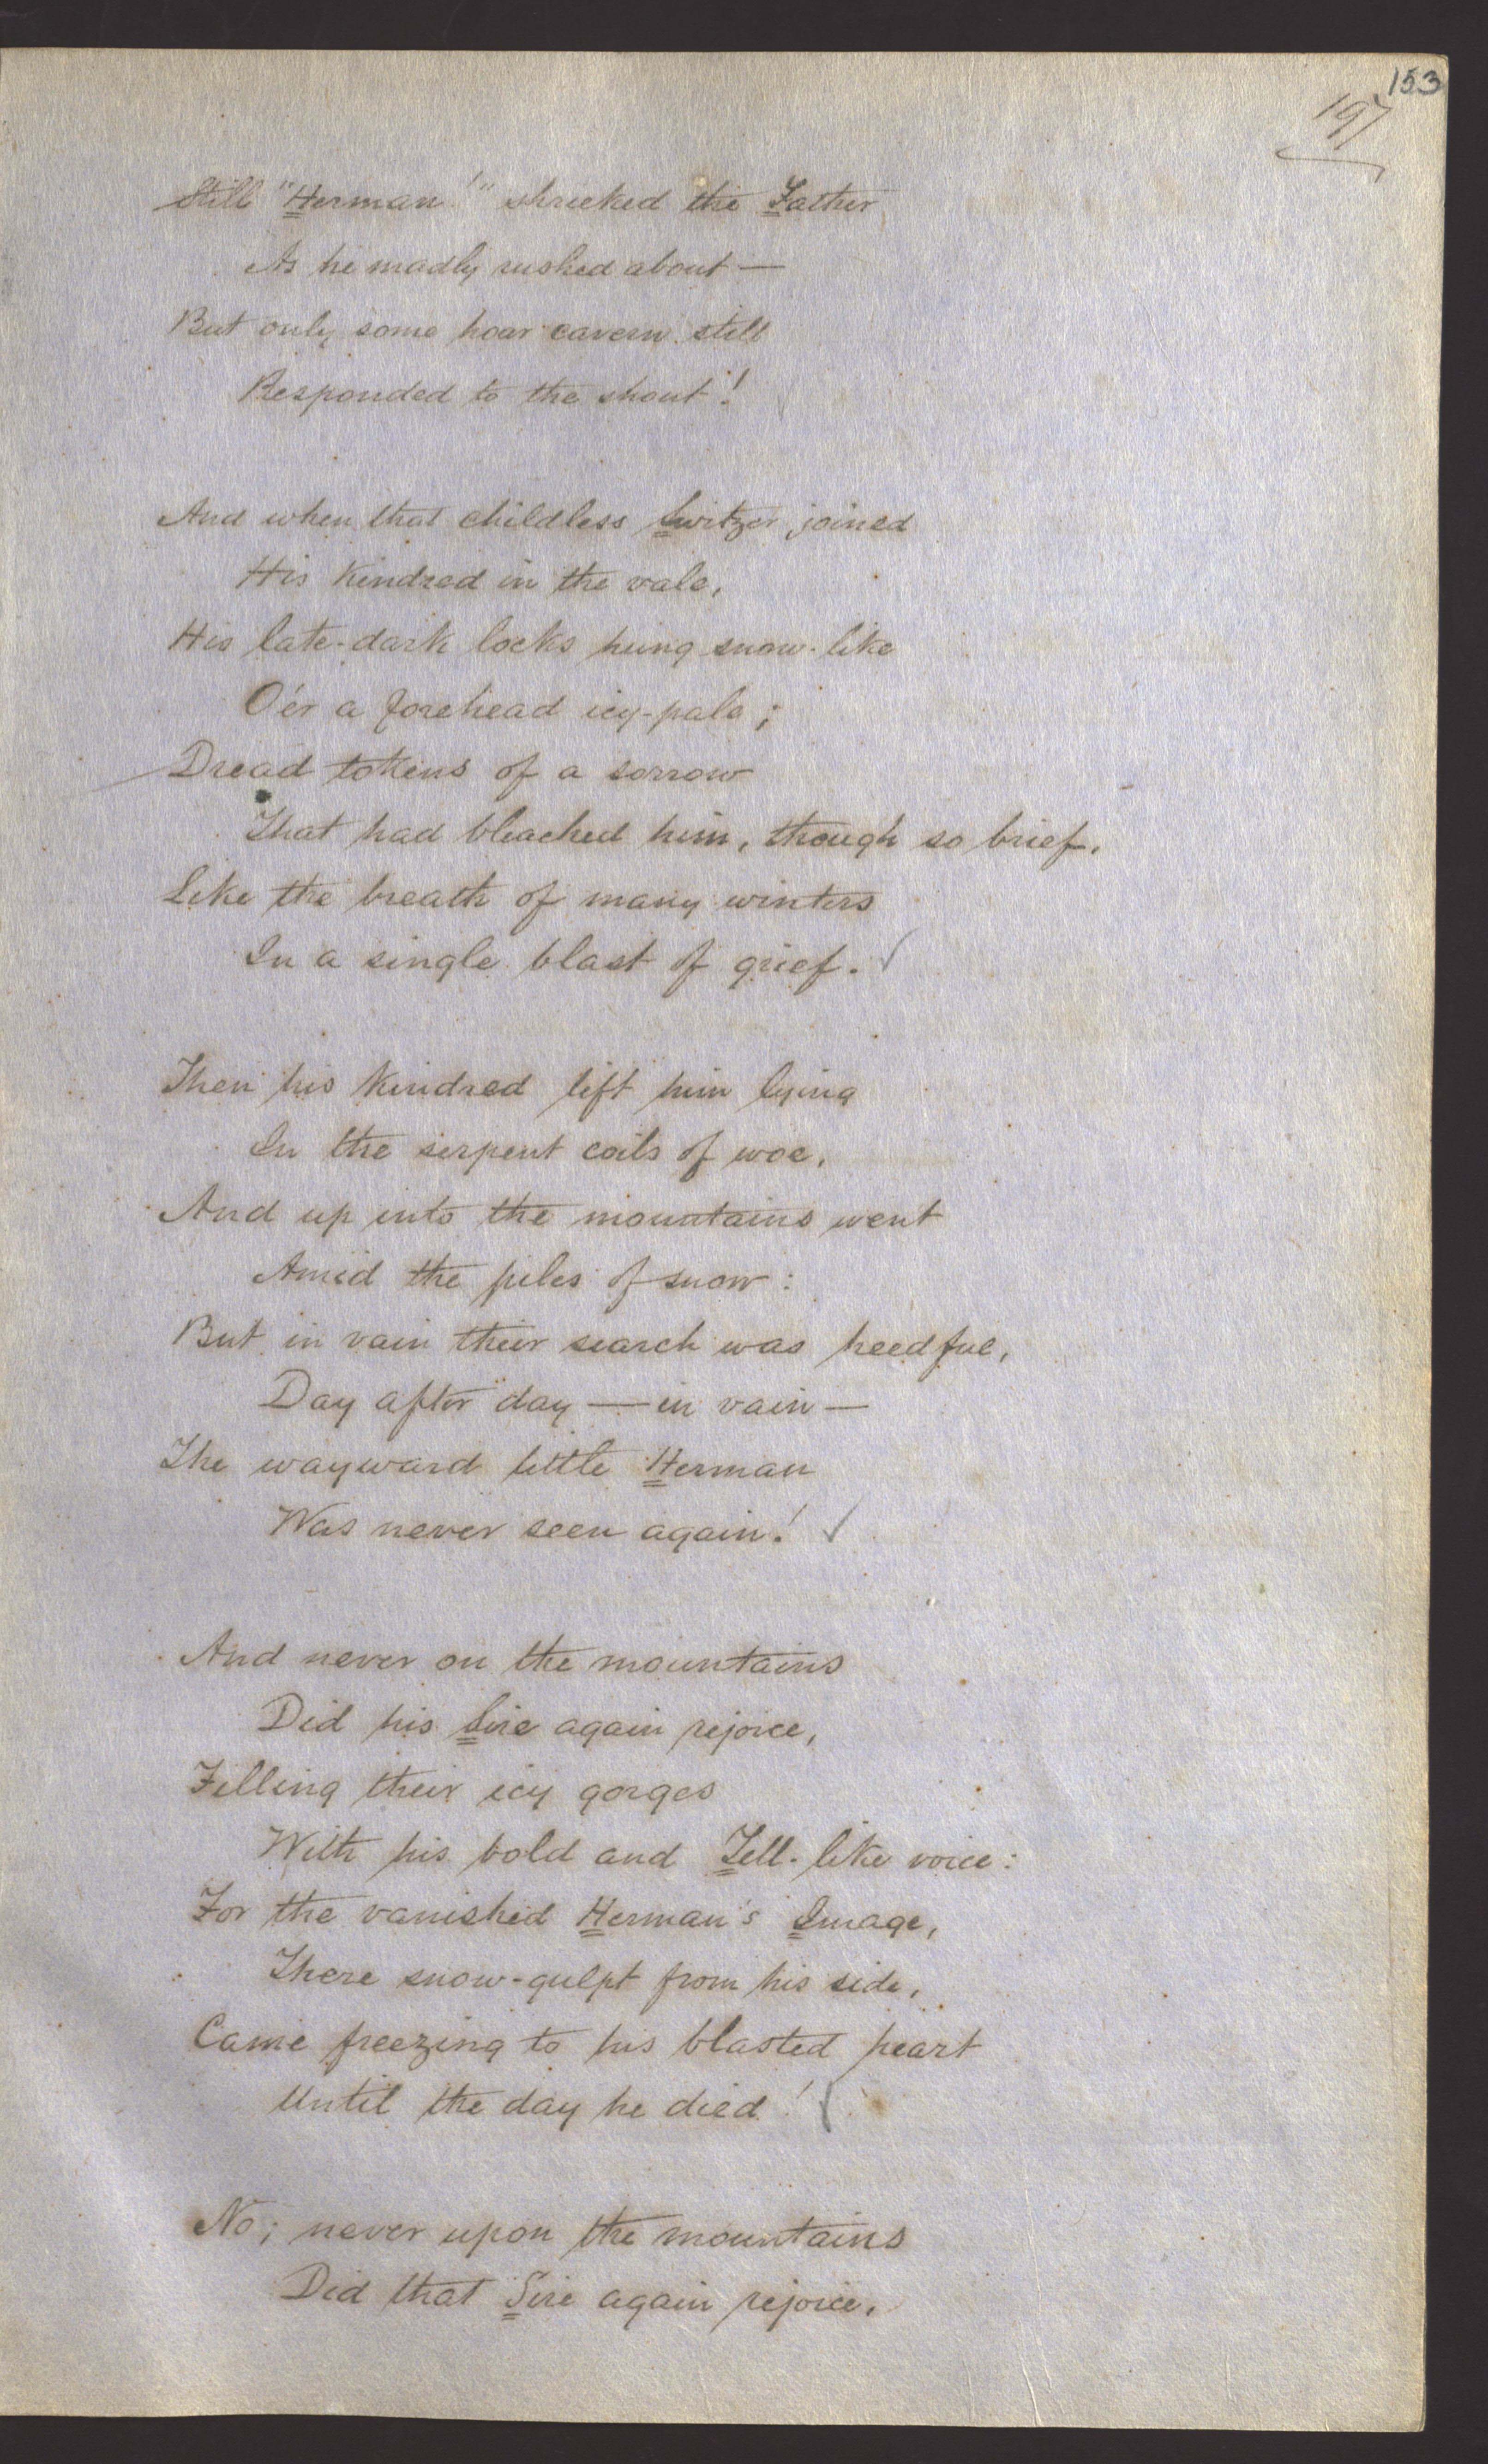 153
197
Still "Herman!" shrieked the Father
As he madly rushed about —
But only some hoar cavern still
Responded to the shout!
And when that childless Switzer joined
His Kindred in the vale,
His late-dark locks hung snow-like
O'er a forehead icy-pale;
Dread tokens of a sorrow
That had bleached him, though so brief,
Like the breath of many winters
In a single blast of grief.
Then his Kindred left him lying
In the serpent coils of woe,
And up into the mountains went
Amid the piles of snow:
But in vain their search was heedful,
Day after day — in vain —
The wayward little Herman
Was never seen again!
And never on the mountains
Did his Sire again rejoice,
Filling their icy gorges
With his bold and Tell-like voice:
For the vanished Herman's Image,
There snow-gulpt from his side,
Came freezing to his blasted heart
Until the day he died!
No; never upon the mountains
Did that Sire again rejoice,